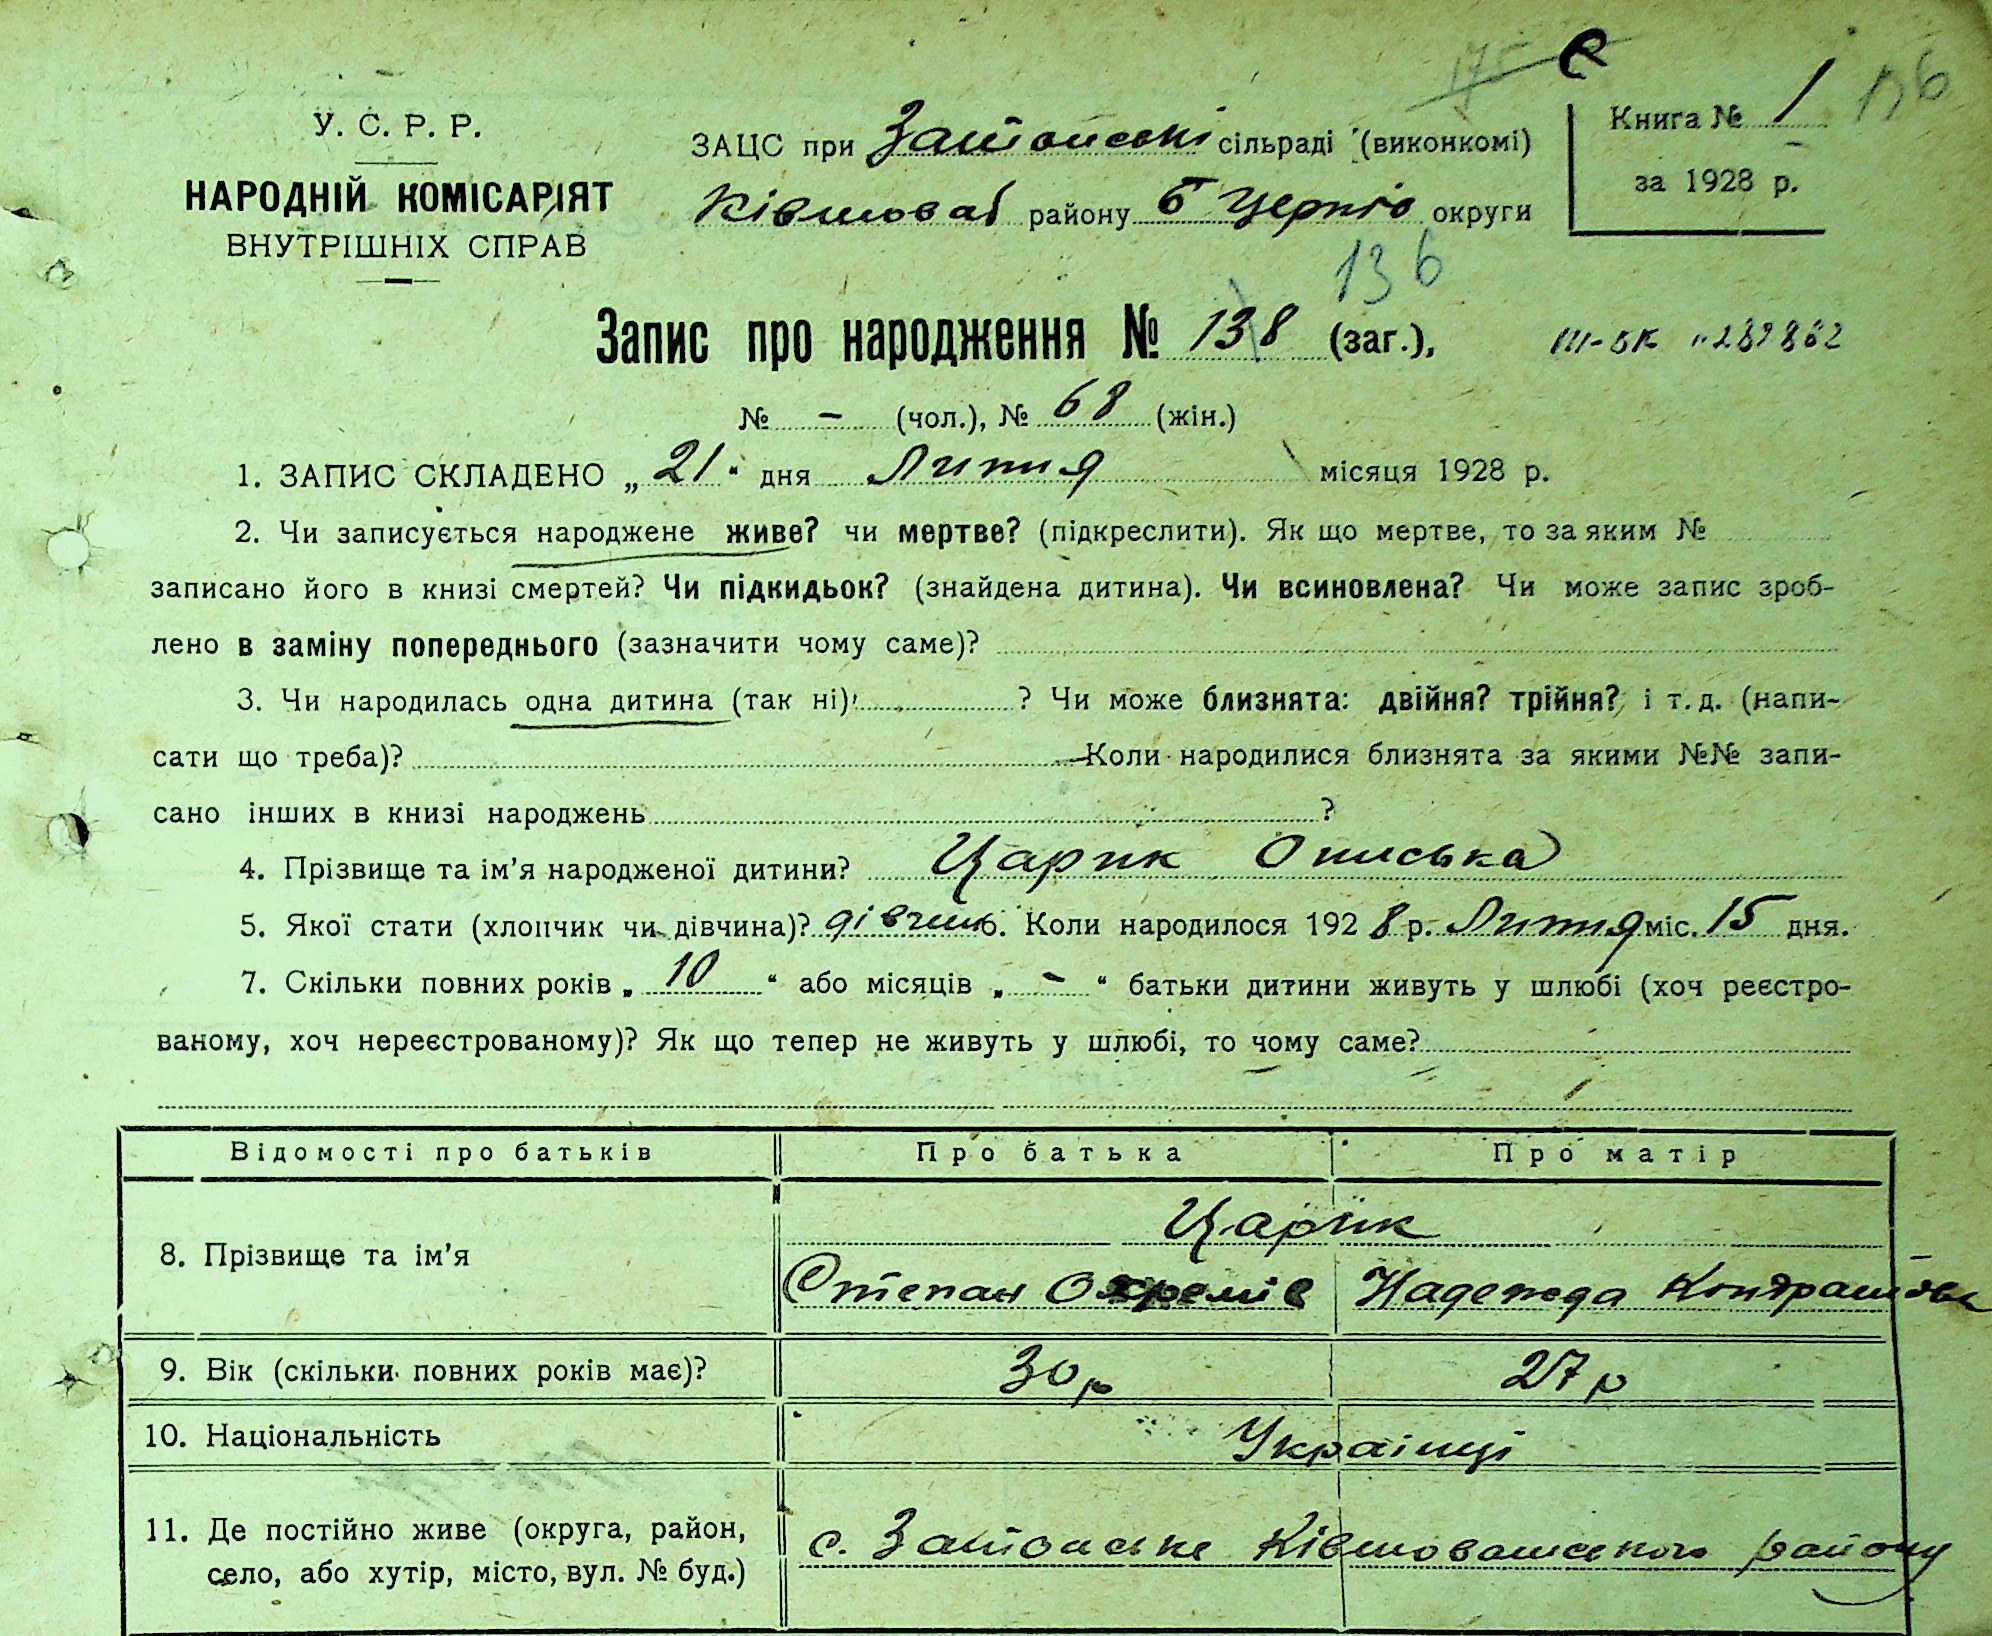 175 Р
У. С. Р. Р.
ЗАЦС при сільраді (виконкомі)
Книга № 1 136
НАРОДНІЙ КОМІСАРІЯТ
району б Церків округи
за 1928 р.
ВНУТРІШНІХ СПРАВ
136
Запис про народження № 138 (заг.), III-БК
№ – (чол.), № 68 (жін.)
1. ЗАПИС СКЛАДЕНО „ 21 “ дня Липня місяця 1928 р.
2. Чи записується народжене живе? чи мертве? (підкреслити). Як що мертве, то за яким №
записано його в книзі смертей? Чи підкидьок? (знайдена дитина). Чи всиновлена? Чи може запис зроб-
лено в заміну попереднього (зазначити чому саме)?
3. Чи народилась одна дитина (так ні) ? Чи може близнята: двійня? трійня? і т. д. (напи-
сати що треба)? Коли народилися близнята за якими №№ запи-
сано інших в книзі народжень ?
4. Прізвище та ім’я народженої дитини? Царик Ониська
5. Якої стати (хлопчик чи дівчина)? дівчин 6. Коли народилося 1928 р. Липня міс. 15 дня.
7. Скільки повних років „ 10 “ або місяців „ – “ батьки дитини живуть у шлюбі (хоч реєстро-
ваному, хоч нереєстрованому)? Як що тепер не живуть у шлюбі, то чому саме?
Відомості про батьків Про батька Про матір
Царик
8. Прізвище та ім’я
Степан Охремів Надежда
9. Вік (скільки повних років має)? 30 р 27 р
10. Національність Українці
11. Де постійно живе (округа, район,
с. району
село, або хутір, місто, вул. № буд.)